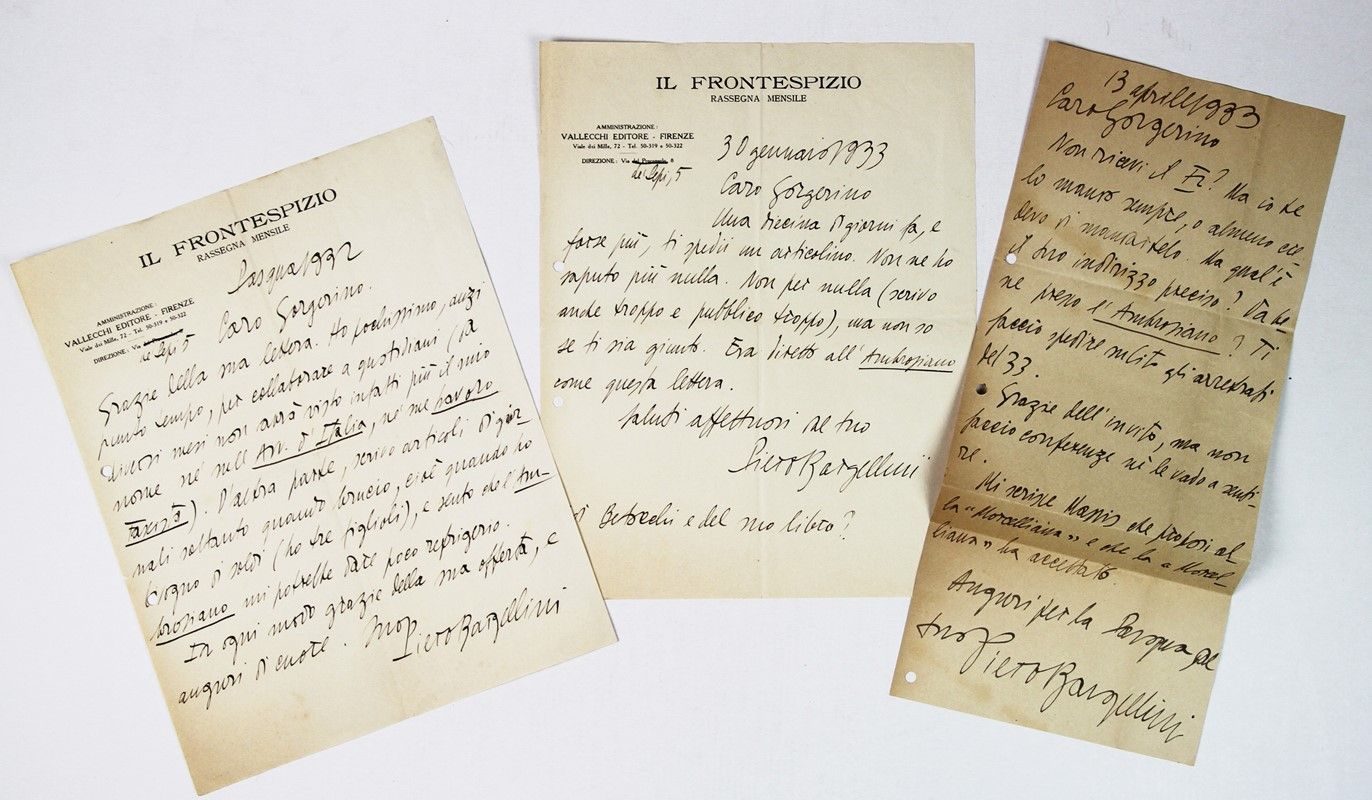 IL FRONTESPIZIO
RASSEGNA MENSILE
AMMINISTRAZIONE:
VALLECCHI EDITORE - FIRENZE
Viale dei Mille, 72 - Tel. 50-319 e 50-322
DIREZIONE: Via
de' Lapi 5
Pasqua 1932
Caro Gorgerino.
Grazie della sua lettera. Ho pochissimo, anzi
punto tempo, per collaborare a quotidiani (da
diversi mesi non avrà visto infatti più il mio
nome né nell'Avv. d'Italia, né nel Lavoro
fascista). D'altra parte, scrivo articoli di gior-
nali soltanto quando brucio, cioè quando ho
bisogno di soldi (ho tre figlioli), e sento che l'Am-
brosiano mi potrebbe dare poco refrigerio.
In ogni modo grazie della sua offerta, e
auguri di cuore. Suo
Piero Bargellini
IL FRONTESPIZIO
RASSEGNA MENSILE
AMMINISTRAZIONE:
VALLECCHI EDITORE - FIRENZE
Viale dei Mille, 72 - Tel. 50-319 e 50-322
DIREZIONE: Via del 8
de' Lapi, 5
30 gennaio 1933
Caro Gorgerino
Una diecina di giorni fa, e
forse più, ti spedii un articolino. Non ne ho
saputo più nulla. Non per nulla (scrivo
anche troppo e pubblico troppo), ma non so
se ti sia giunto. Era diretto all'Ambrosiano
come questa lettera.
Saluti affettuosi dal tuo
Piero Bargellini
Betocchi e del suo libro?
13 aprile 1933
Caro Gorgerino
Non ricevi il Fr? Ma io te
lo mando sempre, o almeno cre
devo di mandartelo. Ma qual'è
il tuo indirizzo preciso? Va be
ne presso l'Ambrosiano? Ti
faccio spedire subito gli arretrati
del 33.
Grazie dell'invito, ma non
faccio conferenze né le vado a senti-
re.
Mi scrisse che proposi al
la "Morcelliana" e che la "Morcel
liana" ha accettato.
Auguri per la Pasqua dal
tuo Piero Bargellini